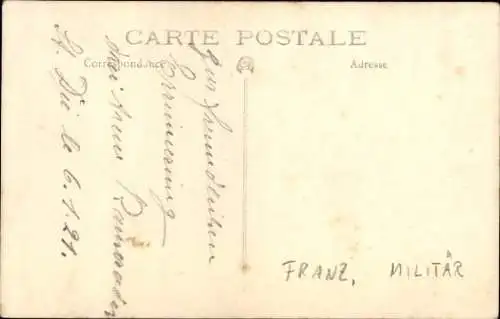 CARTE POSTALE
Correspondance
Adresse
Zur freundlichen
Erinnerung
drei treue Kameraden
St. Dié le 6.1.21.
FRANZ. MILITÄR